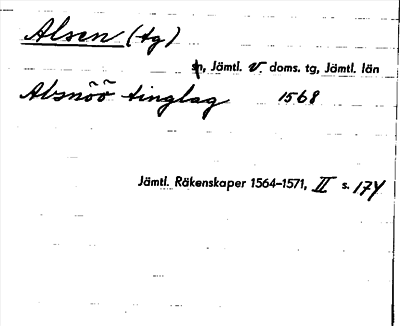 Alsen (tg)
sn, Jämtl. v. doms. tg, Jämtl. län
Alsnöö tinglag 1568
Jämtl. Räkenskaper 1564–1571, II s. 174